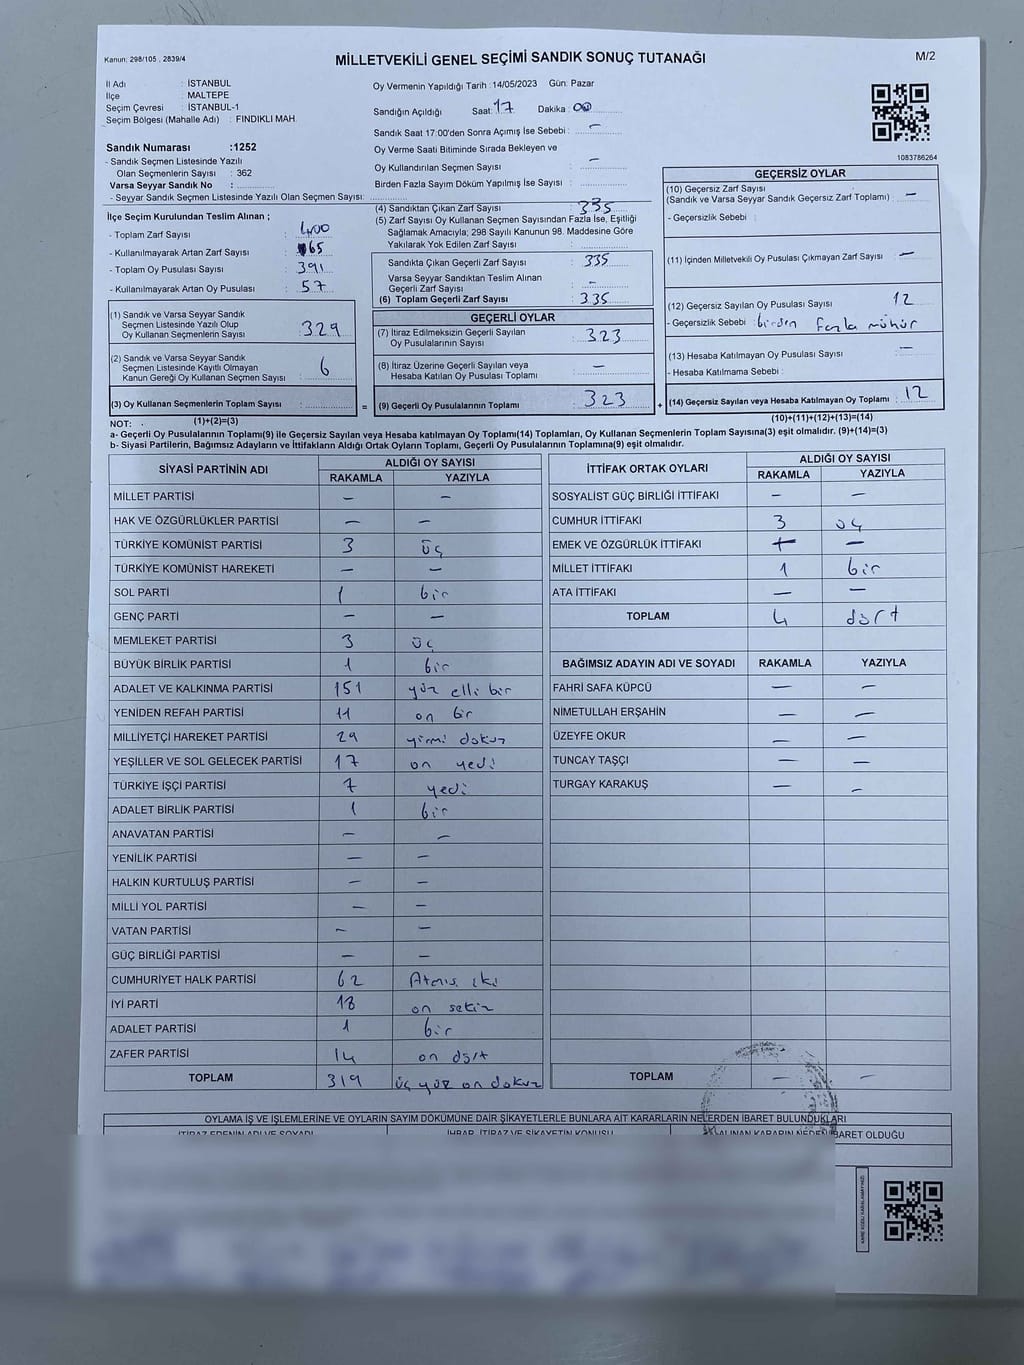 Kanun: 298/105 , 2839/4
MİLLETVEKİLİ GENEL SEÇİMİ SANDIK SONUÇ TUTANAĞI
M/2
İl Adı : İSTANBUL
İlçe : MALTEPE
Seçim Çevresi : İSTANBUL-1
Seçim Bölgesi (Mahalle Adı) : FINDIKLI MAH.
Oy Vermenin Yapıldığı Tarih :14/05/2023 Gün: Pazar
Sandığın Açıldığı Saat: 17 Dakika : 00
Sandık Saat 17:00'den Sonra Açımış İse Sebebi : –
Oy Verme Saati Bitiminde Sırada Bekleyen ve
Oy Kullandırılan Seçmen Sayısı : –
Birden Fazla Sayım Döküm Yapılmış İse Sayısı :
Sandık Numarası :1252
- Sandık Seçmen Listesinde Yazılı
Olan Seçmenlerin Sayısı : 362
Varsa Seyyar Sandık No :
- Seyyar Sandık Seçmen Listesinde Yazılı Olan Seçmen Sayısı:
1083786264
İlçe Seçim Kurulundan Teslim Alınan ;
- Toplam Zarf Sayısı : 400
- Kullanılmayarak Artan Zarf Sayısı : 65
- Toplam Oy Pusulası Sayısı : 391
- Kullanılmayarak Artan Oy Pusulası : 57
(1) Sandık ve Varsa Seyyar Sandık
Seçmen Listesinde Yazılı Olup
Oy Kullanan Seçmenlerin Sayısı : 329
(2) Sandık ve Varsa Seyyar Sandık
Seçmen Listesinde Kayıtlı Olmayan
Kanun Gereği Oy Kullanan Seçmen Sayısı : 6
(3) Oy Kullanan Seçmenlerin Toplam Sayısı :
(1)+(2)=(3)
(4) Sandıktan Çıkan Zarf Sayısı : 335
(5) Zarf Sayısı Oy Kullanan Seçmen Sayısından Fazla İse, Eşitliği
Sağlamak Amacıyla; 298 Sayılı Kanunun 98. Maddesine Göre
Yakılarak Yok Edilen Zarf Sayısı :
Sandıkta Çıkan Geçerli Zarf Sayısı : 335
Varsa Seyyar Sandıktan Teslim Alınan
Geçerli Zarf Sayısı : –
(6) Toplam Geçerli Zarf Sayısı : 335
GEÇERLİ OYLAR
(7) İtiraz Edilmeksizin Geçerli Sayılan
Oy Pusulalarının Sayısı : 323
(8) İtiraz Üzerine Geçerli Sayılan veya
Hesaba Katılan Oy Pusulası Toplamı : –
= (9) Geçerli Oy Pusulalarının Toplamı : 323 +
GEÇERSİZ OYLAR
(10) Geçersiz Zarf Sayısı
(Sandık ve Varsa Seyyar Sandık Geçersiz Zarf Toplamı) : –
- Geçersizlik Sebebi :
(11) İçinden Milletvekili Oy Pusulası Çıkmayan Zarf Sayısı : –
(12) Geçersiz Sayılan Oy Pusulası Sayısı : 12
- Geçersizlik Sebebi : birden fazla mühür
(13) Hesaba Katılmayan Oy Pusulası Sayısı : –
- Hesaba Katılmama Sebebi :
(14) Geçersiz Sayılan veya Hesaba Katılmayan Oy Toplamı : 12
(10)+(11)+(12)+(13)=(14)
NOT:
a- Geçerli Oy Pusulalarının Toplamı(9) ile Geçersiz Sayılan veya Hesaba katılmayan Oy Toplamı(14) Toplamları, Oy Kullanan Seçmenlerin Toplam Sayısına(3) eşit olmalıdır. (9)+(14)=(3)
b- Siyasi Partilerin, Bağımsız Adayların ve İttifakların Aldığı Ortak Oyların Toplamı, Geçerli Oy Pusulalarının Toplamına(9) eşit olmalıdır.
SİYASİ PARTİNİN ADI
ALDIĞI OY SAYISI
RAKAMLA YAZIYLA
MİLLET PARTİSİ – –
HAK VE ÖZGÜRLÜKLER PARTİSİ – –
TÜRKİYE KOMÜNİST PARTİSİ 3 üç
TÜRKİYE KOMÜNİST HAREKETİ – –
SOL PARTİ 1 bir
GENÇ PARTİ – –
MEMLEKET PARTİSİ 3 üç
BÜYÜK BİRLİK PARTİSİ 1 bir
ADALET VE KALKINMA PARTİSİ 151 yüz elli bir
YENİDEN REFAH PARTİSİ 11 on bir
MİLLİYETÇİ HAREKET PARTİSİ 29 yirmi dokuz
YEŞİLLER VE SOL GELECEK PARTİSİ 17 on yedi
TÜRKİYE İŞÇİ PARTİSİ 7 yedi
ADALET BİRLİK PARTİSİ 1 bir
ANAVATAN PARTİSİ – –
YENİLİK PARTİSİ – –
HALKIN KURTULUŞ PARTİSİ – –
MİLLİ YOL PARTİSİ – –
VATAN PARTİSİ – –
GÜÇ BİRLİĞİ PARTİSİ – –
CUMHURİYET HALK PARTİSİ 62 Atmış iki
İYİ PARTİ 18 on sekiz
ADALET PARTİSİ 1 bir
ZAFER PARTİSİ 14 on dört
TOPLAM 319 üç yüz on dokuz
İTTİFAK ORTAK OYLARI
ALDIĞI OY SAYISI
RAKAMLA YAZIYLA
SOSYALİST GÜÇ BİRLİĞİ İTTİFAKI – –
CUMHUR İTTİFAKI 3 üç
EMEK VE ÖZGÜRLÜK İTTİFAKI – –
MİLLET İTTİFAKI 1 bir
ATA İTTİFAKI – –
TOPLAM 4 dört
BAĞIMSIZ ADAYIN ADI VE SOYADI RAKAMLA YAZIYLA
FAHRİ SAFA KÜPCÜ – –
NİMETULLAH ERŞAHİN – –
ÜZEYFE OKUR – –
TUNCAY TAŞÇI – –
TURGAY KARAKUŞ – –
TOPLAM – –
OYLAMA İŞ VE İŞLEMLERİNE VE OYLARIN SAYIM DÖKÜMÜNE DAİR ŞİKAYETLERLE BUNLARA AİT KARARLARIN NELERDEN İBARET BULUNDUKLARI
İTİRAZ EDENİN ADI VE SOYADI
İHBAR, İTİRAZ VE ŞİKAYETİN KONUSU
ALINAN KARARIN NEDEN İBARET OLDUĞU